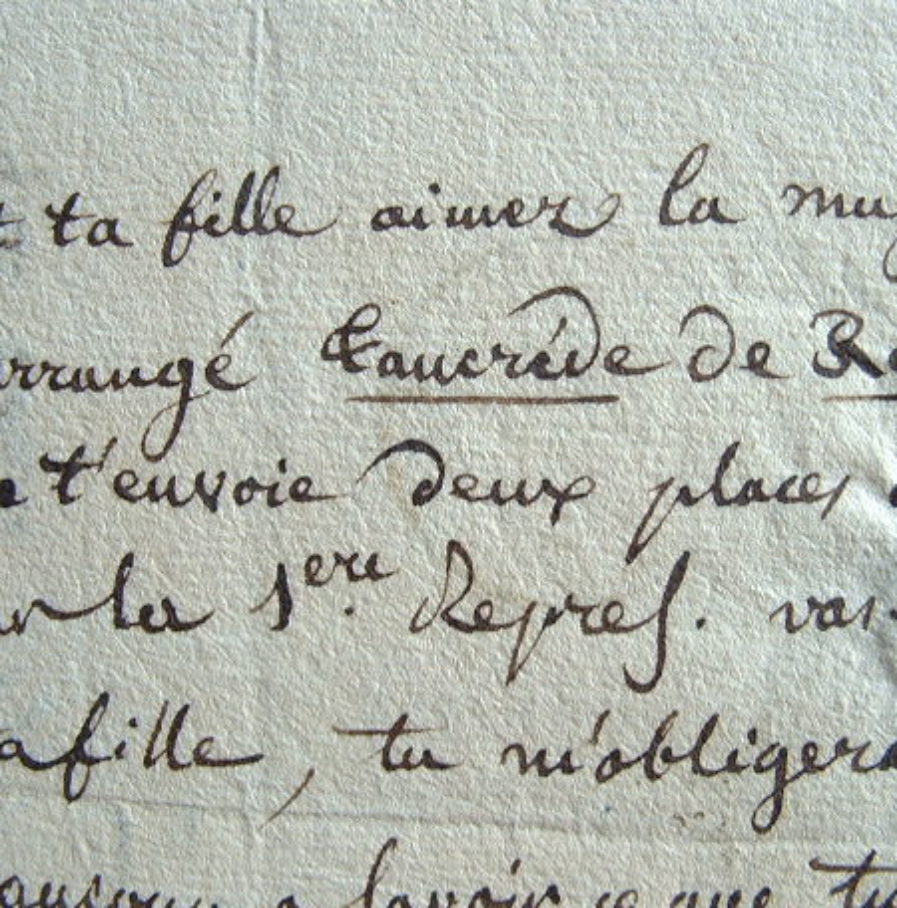 t ta fille aimez la mu
rrangé Tancrède de Ro
e t'envoie deux places
la 1ere. Repres. vas-
a fille, tu m'obligera
a savoir ce que tu